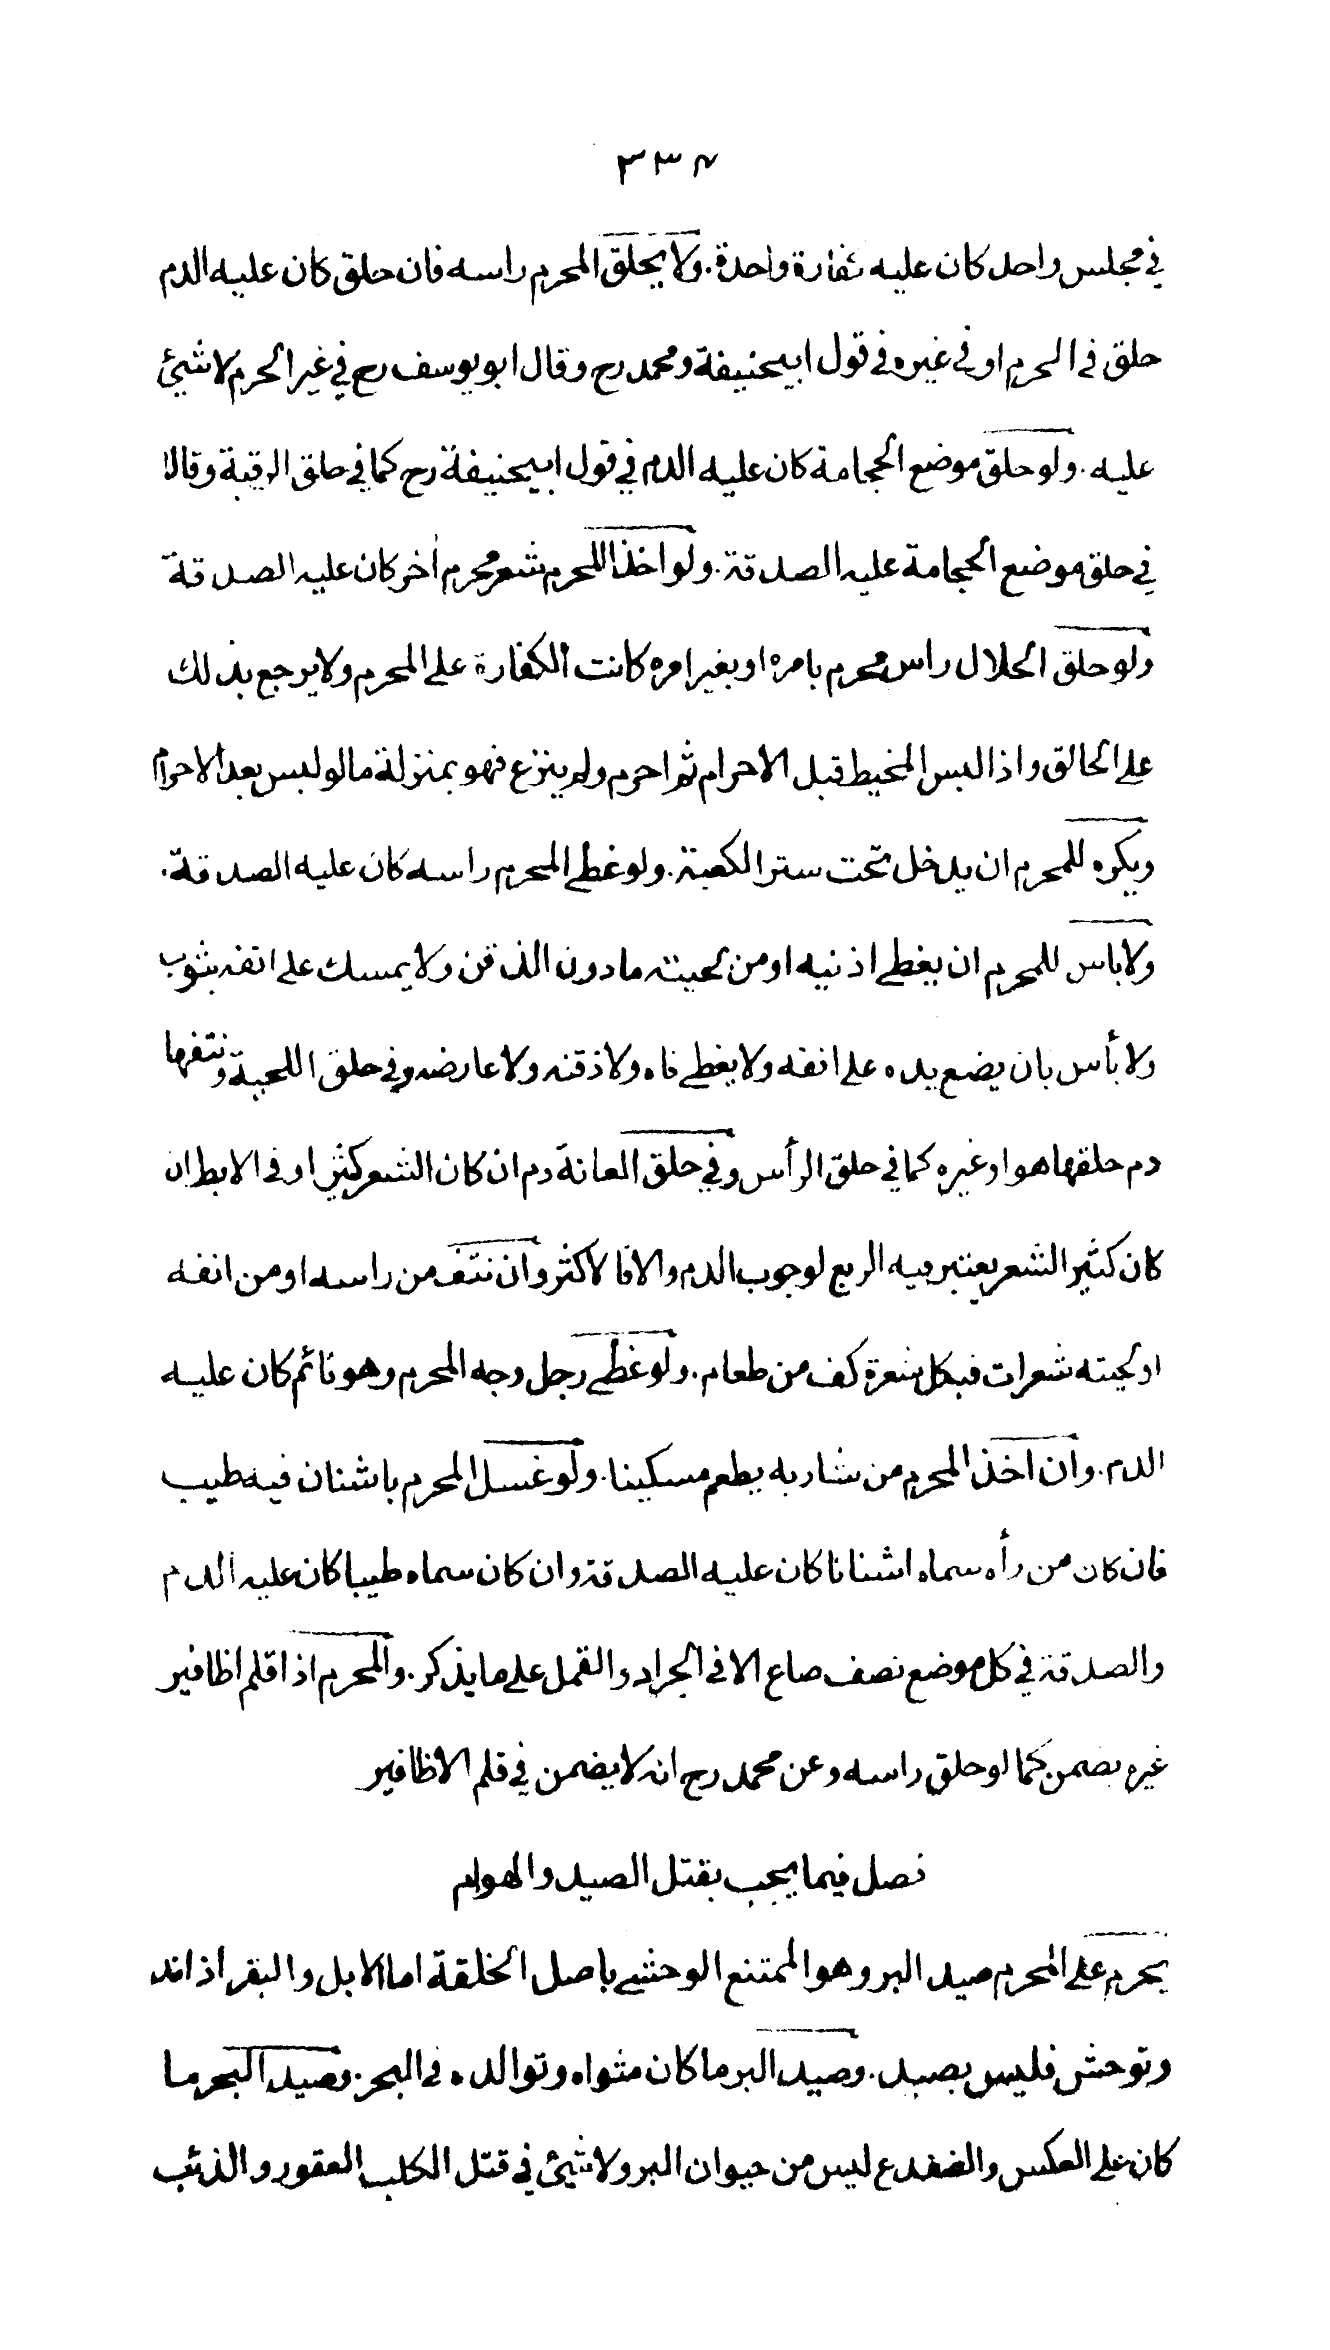 ٣٣٨
في مجلس واحد كان عليه كفارة واحدة. ولا يحلق المحرم راسه فان حلق كان عليه الدم
حلق في الحرم او في غيره في قول ابيحنيفة ومحمد رح وقال ابو يوسف رح في غير الحرم لا شيئ
عليه. ولو حلق موضع الحجامة كان عليه الدم في قول ابيحنيفة رح كما في حلق الرقبة وقالا
في حلق موضع الحجامة عليه الصدقة. ولو اخذ المحرم شعر محرم اخر كان عليه الصدقة
ولو حلق الحلال راس محرم بامره او بغير امره كانت الكفارة على المحرم ولا يرجع بذلك
على الحالق واذا لبس المخيط قبل الاحرام ثم احرم ولم ينزع فهو بمنزلة ما لو لبس بعد الاحرام
ويكره للمحرم ان يدخل تحت ستر الكعبة. ولو غطى المحرم راسه كان عليه الصدقة.
ولا باس للمحرم ان يغطى اذنيه او من لحيته ما دون الذقن ولا يمسك على انفه بثوب
ولا بأس بان يضع يده على انفه ولا يغطى فاه ولا ذقنه ولا عارضه وفي حلق اللحية ونتفها
دم حلقها هو او غيره كما في حلق الرأس وفي حلق العانة دم ان كان الشعر كثيرا وفي الابط ان
كان كثير الشعر يعتبر فيه الربع لوجوب الدم والا فالاكثر وان نتف من راسه او من انفه
او لحيته شعرات فبكل شعرة كف من طعام. ولو غطى رجل وجه المحرم وهو نائم كان عليه
الدم. وان اخذ المحرم من شاربه يطعم مسكينا. ولو غسل المحرم باشنان فيه طيب
فان كان من رأه سماه اشنانا كان عليه الصدقة وان كان سماه طيبا كان عليه الدم
والصدقة في كل موضع نصف صاع الا في الجراد والقمل على ما يذكر. والمحرم اذا قلم اظافير
غيره يضمن كما لو حلق راسه وعن محمد رح انه لا يضمن في قلم الاظافير
فصل فيما يجب بقتل الصيد والهوام
يحرم على المحرم صيد البر وهو الممتنع الوحشي باصل الخلقة اما الابل والبقر اذا ند
وتوحش فليس بصيد. وصيد البر ما كان مثواه وتوالده في البحر. وصيد البحر ما
كان على العكس والضفدع ليس من حيوان البر ولا شيئ في قتل الكلب العقور والذئب